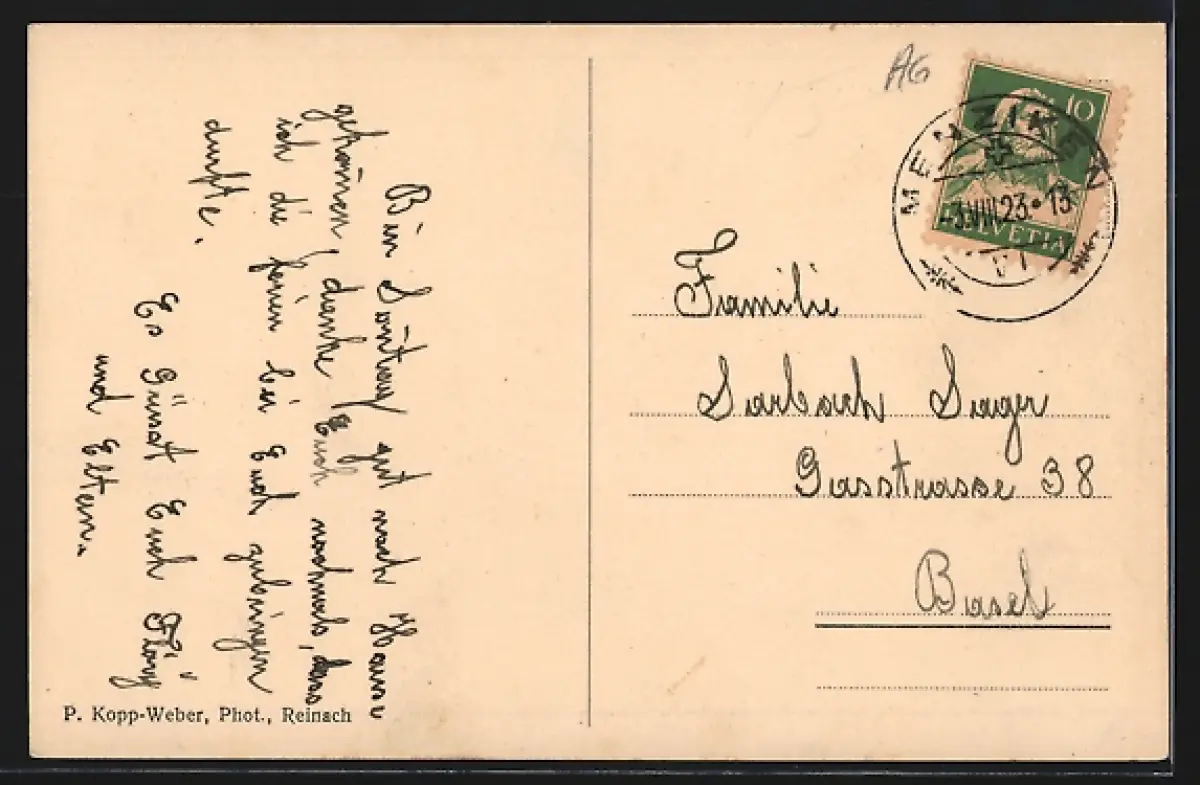 Bin Sontag gut nach Hause
gekommen, danke Euch nochmals, dass
ich die ferien bei Euch zubringen
durfte.
Es Grüsst Euch
und Eltern.
P. Kopp-Weber, Phot., Reinach
AG
10
HELVETIA
MENZIKEN
-3.VIII.23.-13
VI
Familie
Sarbach Suger
Gasstrasse 38
Basel